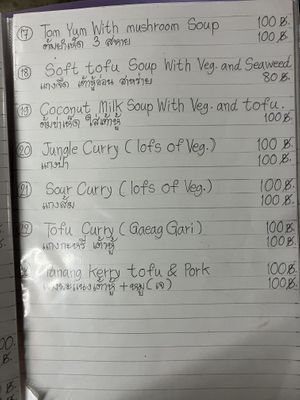 17 Tom Yum With mushroom Soup 100 ฿.
ต้มยำเห็ด 3 สหาย 100 ฿.
18 Soft tofu Soup With Veg. and Seaweed
แกงจืด เต้าหู้อ่อน สาหร่าย 80 ฿.
19 Coconut Milk Soup With Veg. and tofu.
ต้มข่าเห็ด ใส่เต้าหู้ 100 ฿.
20 Jungle Curry (lofs of Veg.) 100 ฿.
แกงป่า 100 ฿.
21 Sour Curry (lofs of Veg.) 100 ฿.
แกงส้ม 100 ฿.
22 Tofu Curry (Gaeag Gari) 100 ฿.
แกงกะหรี่ เต้าหู้ 100 ฿.
Panang kerry tofu & Pork 100 ฿.
แกงพะแนงเต้าหู้ + หมู (เจ) 100 ฿.